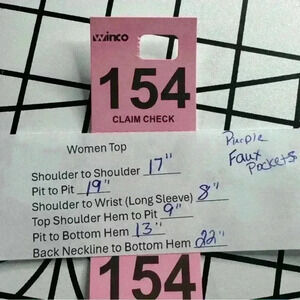 winco
154
CLAIM CHECK
Women Top
Purple
Faux
Pockets
Shoulder to Shoulder 17"
Pit to Pit 19"
Shoulder to Wrist (Long Sleeve) 8"
Top Shoulder Hem to Pit 9"
Pit to Bottom Hem 13"
Back Neckline to Bottom Hem 22"
154